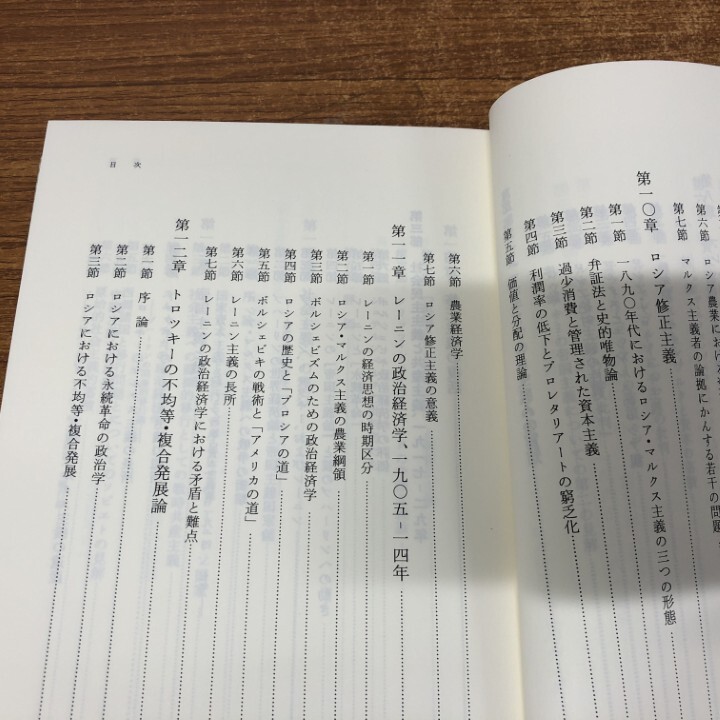 第六節 ロシアの農業における
マルクス主義者の論拠にかんする若干の問題
第七節
第一〇章 ロシア修正主義
第一節 一八九〇年代におけるロシア・マルクス主義の三つの形態
第二節 弁証法と史的唯物論
第三節 過少消費と管理された資本主義
第四節 利潤率の低下とプロレタリアートの窮乏化
第五節 価値と分配の理論
目次
第六節 農業経済学
第七節 ロシア修正主義の意義
第一一章 レーニンの政治経済学、一九〇五－一四年
第一節 レーニンの経済思想の時期区分
第二節 ロシア・マルクス主義の農業綱領
第三節 ボルシェビズムのための政治経済学
第四節 ロシアの歴史と「プロシアの道」
第五節 ボルシェビキの戦術と「アメリカの道」
第六節 レーニン主義の長所
第七節 レーニンの政治経済学における矛盾と難点
第一二章 トロツキーの不均等・複合発展論
第一節 序論
第二節 ロシアにおける永続革命の政治学
第三節 ロシアにおける不均等・複合発展